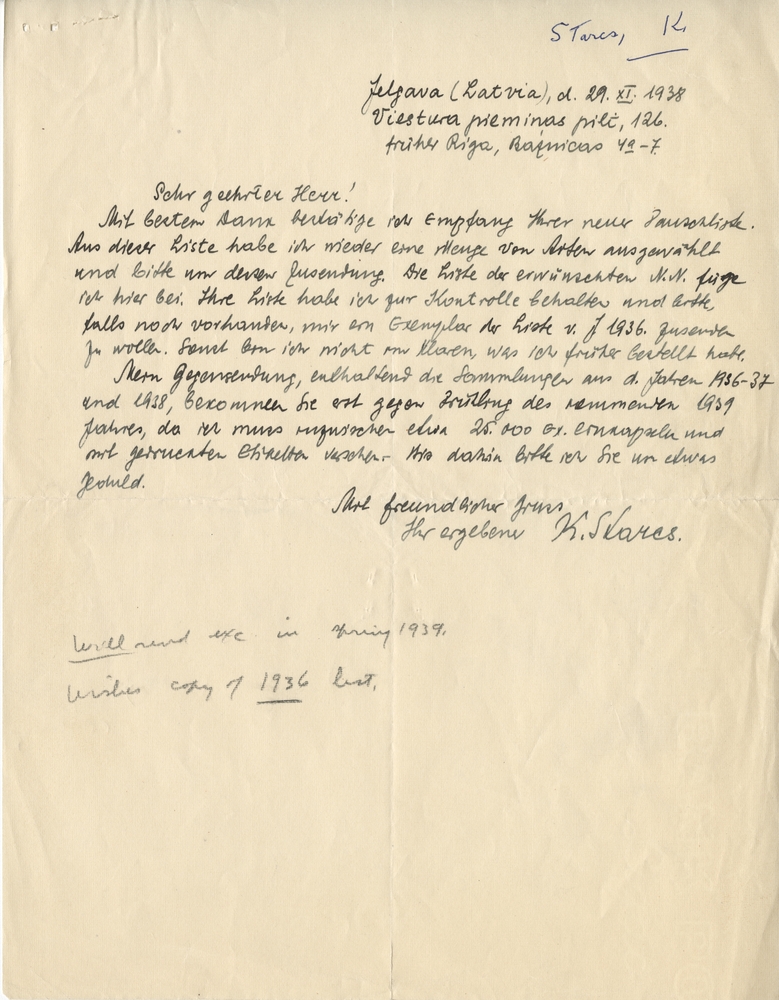 Starcs, K.
Jelgava (Latvia), d. 29. XI. 1938
Viestura piemiņas pilī, 126.
früher Riga, Baznicas 4a-7.
Sehr geehrter Herr!
Mit bestem Dank bestätige ich Empfang Ihrer neuer Tauschliste.
Aus dieser Liste habe ich wieder eine Menge von Arten ausgewählt
und bitte um deren Zusendung. Die Liste der erwünschten N.N. füge
ich hier bei. Ihre Liste habe ich zur Kontrolle behalten und bitte,
falls noch vorhanden, mir ein Exemplar der Liste v. J 1936. zusenden
zu wollen. Sonst bin ich nicht im Klaren, was ich früher bestellt habe.
Mein Gegensendung, enthaltend die Sammlungen aus d. Jahren 1936-37
und 1938, bekommen Sie erst gegen Frühling des kommenden 1939
Jahres, da ich muss inzwischen etwa 25.000 Ex. einkapseln und
mit gedruckten Etiketten versehen. Bis dahin bitte ich Sie um etwas
Geduld.
Mit freundlicher Gruss
Ihr ergebener K. Starcs.
Will send exc. in spring 1939.
Wishes copy of 1936 list.